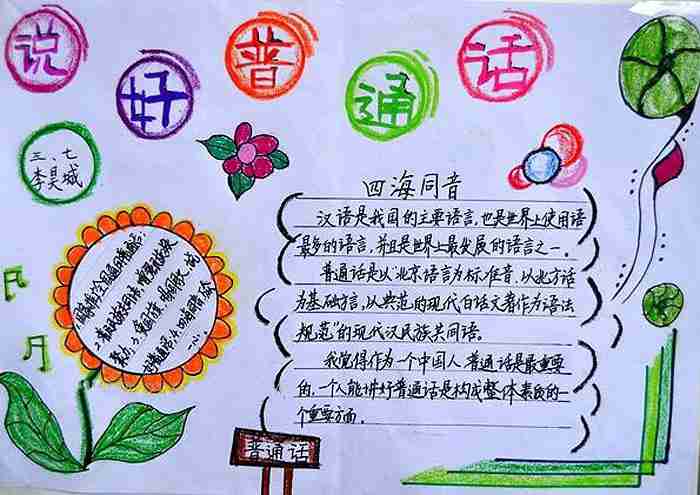 说好普通话
三、七
李昊城
四海同音
汉语是我国的主要语言,也是世界上使用语
最多的语言,并且是世界上最发展的语言之一。
普通话是以北京语言为标准音,以北方话
为基础方言,以典范的现代白话文著作为语法
规范"的现代汉民族共同语。
我觉得作为一个中国人普通话是最重要
的,一个人能讲好普通话是构成整体素质的一
个重要方面。
普通话